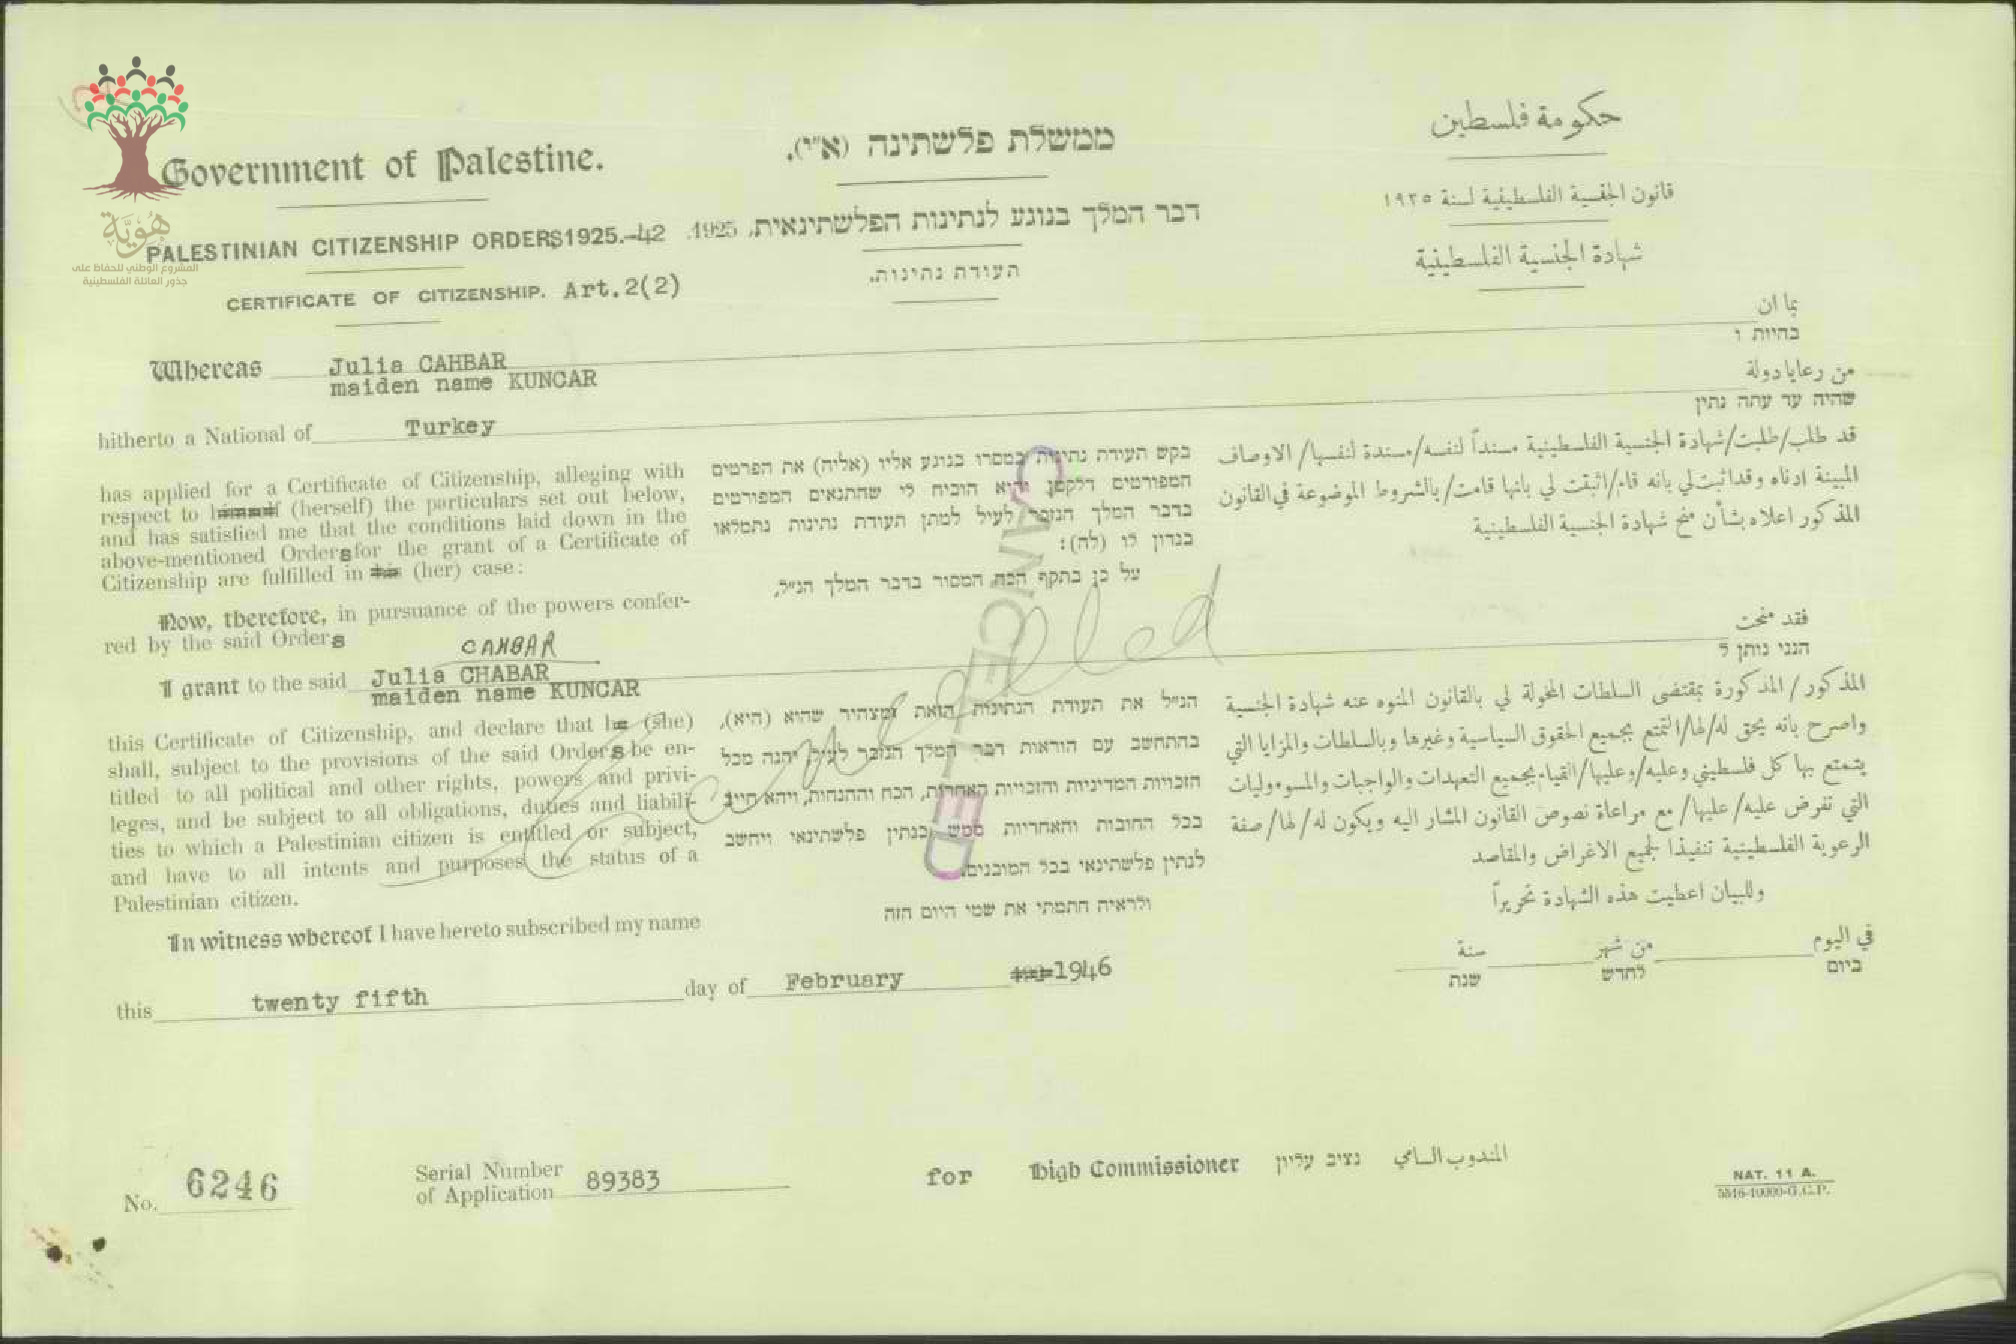 Government of Palestine.
PALESTINIAN CITIZENSHIP ORDERS 1925.-42
CERTIFICATE OF CITIZENSHIP. Art.2(2)
ממשלת פלשתינה (א״י).
דבר המלך בנוגע לנתינות הפלשתינאית, 1925.
תעודת נתינות.
حكومة فلسطين
قانون الجنسية الفلسطينية لسنة ١٩٢٥
شهادة الجنسية الفلسطينية
هُويَّة
المشروع الوطني للحفاظ على
جذور العائلة الفلسطينية
Whereas Julia CAHBAR
maiden name KUNCAR
بما ان
בהיות ו
hitherto a National of Turkey
من رعايا دولة
שהיה עד עתה נתין
has applied for a Certificate of Citizenship, alleging with
respect to himself (herself) the particulars set out below,
and has satisfied me that the conditions laid down in the
above-mentioned Orders for the grant of a Certificate of
Citizenship are fulfilled in his (her) case:
Now, therefore, in pursuance of the powers confer-
red by the said Orders
בקש תעודת נתינות במסרו בנוגע אליו (אליה) את הפרטים
המפורטים דלקמן והוא הוכיח לי שהתנאים המפורטים
בדבר המלך הנזכר לעיל למתן תעודת נתינות נתמלאו
בנדון לו (לה):
על כן בתקף הכח המסור בדבר המלך הנ״ל,
قد طلب/طلبت/شهادة الجنسية الفلسطينية مسنداً لنفسه/مسندة لنفسها/ الاوصاف
المبينة ادناه وقد اثبت لي بانه قام/اثبقت لي بانها قامت/ بالشروط الموضوعة في القانون
المذكور اعلاه بشأن منح شهادة الجنسية الفلسطينية
CAHBAR
I grant to the said Julia CHABAR
maiden name KUNCAR
فقد منحت
הנני נותן ל
this Certificate of Citizenship, and declare that he (she)
shall, subject to the provisions of the said Orders be en-
titled to all political and other rights, powers and privi-
leges, and be subject to all obligations, duties and liabili-
ties to which a Palestinian citizen is entitled or subject,
and have to all intents and purposes the status of a
Palestinian citizen.
In witness whereof I have hereto subscribed my name
הנ״ל את תעודת הנתינות הזאת ומצהיר שהוא (היא),
בהתחשב עם הוראות דבר המלך הנזכר לעיל, יהנה מכל
הזכויות המדיניות והזכויות האחרות, הכח וההנחות, ויהא חייב
בכל החובות והאחריות ממש כנתין פלשתינאי ויחשב
לנתין פלשתינאי בכל המובנים.
ולראיה חתמתי את שמי היום הזה
المذكور / المذكورة بمقتضى السلطات المخولة لي بالقانون المنوه عنه شهادة الجنسية
واصرح بانه يحق له/لها/التمتع بجميع الحقوق السياسية وغيرها وبالسلطات والمزايا التي
يتمتع بها كل فلسطيني وعليه/وعليها/القيام بجميع التعهدات والواجبات والمسوءوليات
التي تفرض عليه/عليها/ مع مراعاة نصوص القانون المشار اليه ويكون له/لها/صفة
الرعوية الفلسطينية تنفيذا لجميع الاغراض والمقاصد
وللبيان اعطيت هذه الشهادة تحريراً
CANCELLED
Cancelled
this twenty fifth day of February 1946
في اليوم من شهر سنة
ביום לחדש שנת
No. 6246
Serial Number
of Application 89383
for High Commissioner נציב עליון المندوب السامي
NAT. 11 A.
5516-10000-G.C.P.